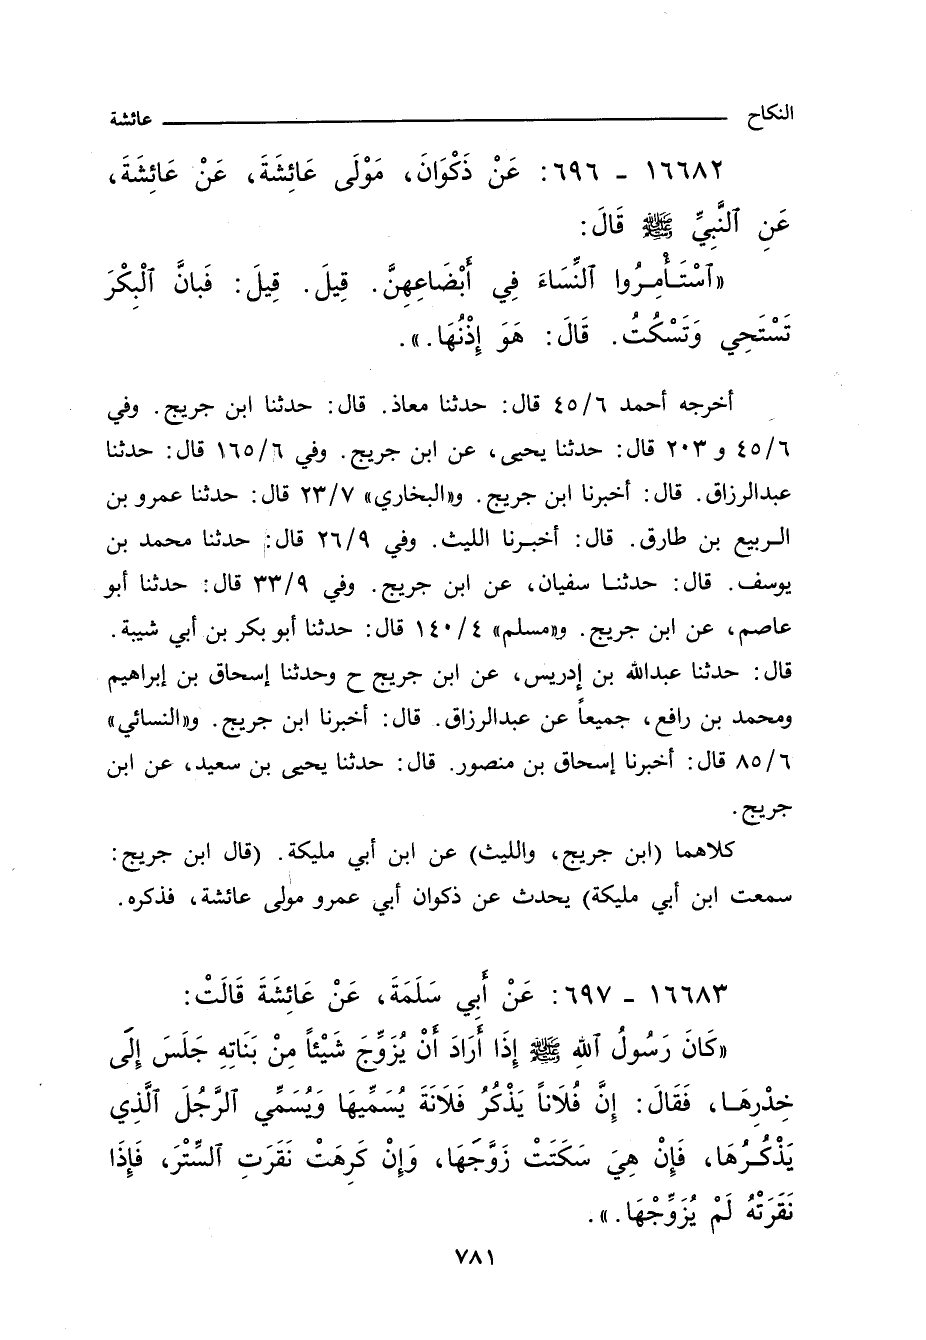 النكاح عائشة
١٦٦٨٢ - ٦٩٦: عَنْ ذَكْوَانَ، مَوْلَى عَائِشَةَ، عَنْ عَائِشَةَ،
عَنِ ٱلنَّبِيِّ ﷺ قَالَ:
«ٱسْتَأْمِرُوا ٱلنِّسَاءَ فِي أَبْضَاعِهِنَّ. قِيلَ. قِيلَ: فَبِانَّ ٱلْبِكْرَ
تَسْتَحِي وَتَسْكُتُ. قَالَ: هَوَ إِذْنُهَا.».
أخرجه أحمد ٤٥/٦ قال: حدثنا معاذ. قال: حدثنا ابن جريج. وفي
٤٥/٦ و ٢٠٣ قال: حدثنا يحيى، عن ابن جريج. وفي ١٦٥/٦ قال: حدثنا
عبدالرزاق. قال: أخبرنا ابن جريج. و«البخاري» ٢٣/٧ قال: حدثنا عمرو بن
الربيع بن طارق. قال: أخبرنا الليث. وفي ٢٦/٩ قال: حدثنا محمد بن
يوسف. قال: حدثنا سفيان، عن ابن جريج. وفي ٣٣/٩ قال: حدثنا أبو
عاصم، عن ابن جريج. و«مسلم» ١٤٠/٤ قال: حدثنا أبو بكر بن أبي شيبة.
قال: حدثنا عبدالله بن إدريس، عن ابن جريج ح وحدثنا إسحاق بن إبراهيم
ومحمد بن رافع، جميعاً عن عبدالرزاق. قال: أخبرنا ابن جريج. و«النسائي»
٨٥/٦ قال: أخبرنا إسحاق بن منصور. قال: حدثنا يحيى بن سعيد، عن ابن
جريج.
كلاهما (ابن جريج، والليث) عن ابن أبي مليكة. (قال ابن جريج:
سمعت ابن أبي مليكة) يحدث عن ذكوان أبي عمرو مولى عائشة، فذكره.
١٦٦٨٣ - ٦٩٧: عَنْ أَبِي سَلَمَةَ، عَنْ عَائِشَةَ قَالَتْ:
«كَانَ رَسُولُ ٱللهِ ﷺ إِذَا أَرَادَ أَنْ يُزَوِّجَ شَيْئاً مِنْ بَنَاتِهِ جَلَسَ إِلَى
خِدْرِهَا، فَقَالَ: إِنَّ فُلَاناً يَذْكُرُ فَلَانَةَ يُسَمِّيهَا وَيُسَمِّي ٱلرَّجُلَ ٱلَّذِي
يَذْكُرُهَا، فَإِنْ هِيَ سَكَتَتْ زَوَّجَهَا، وَإِنْ كَرِهَتْ نَقَرَتِ ٱلسِّتْرَ، فَإِذَا
نَقَرَتْهُ لَمْ يُزَوِّجْهَا.».
٧٨١